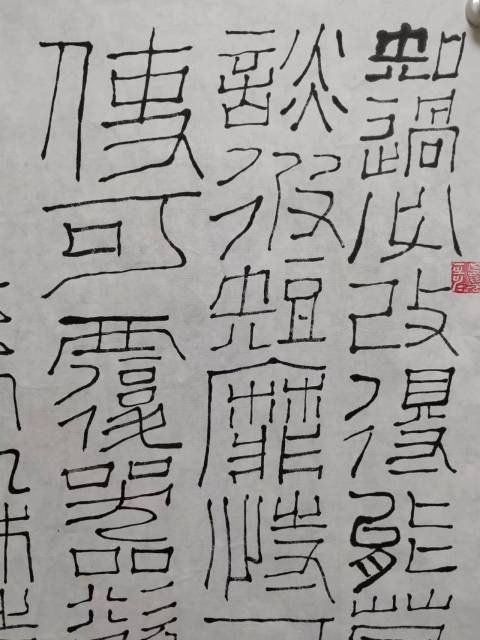 知過必改得能
談彼短靡恃
使可覆器